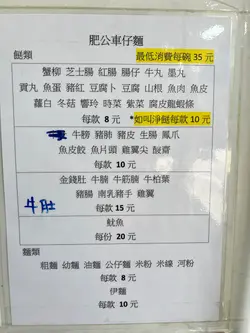 肥公車仔麵
餸類 最低消費每碗 35 元
蟹柳 芝士腸 紅腸 腸仔 牛丸 墨丸
貢丸 魚蛋 豬紅 豆腐卜 豆腐 山根 魚肉 魚皮
蘿白 冬菇 響玲 時菜 紫菜 腐皮龍蝦條
每款 8 元 *如叫淨餸每款 10 元
牛膀 豬肺 豬皮 生腸 鳳爪
魚皮餃 魚片頭 雞翼尖 齋
每款 10 元
金錢肚 牛腩 牛筋腩 牛柏葉
豬腸 南乳豬手 雞翼
牛肚
每款 15 元
魷魚
每份 20 元
麵類
粗麵 幼麵 油麵 公仔麵 米粉 米線 河粉
每款 8 元
伊麵
每款 10 元